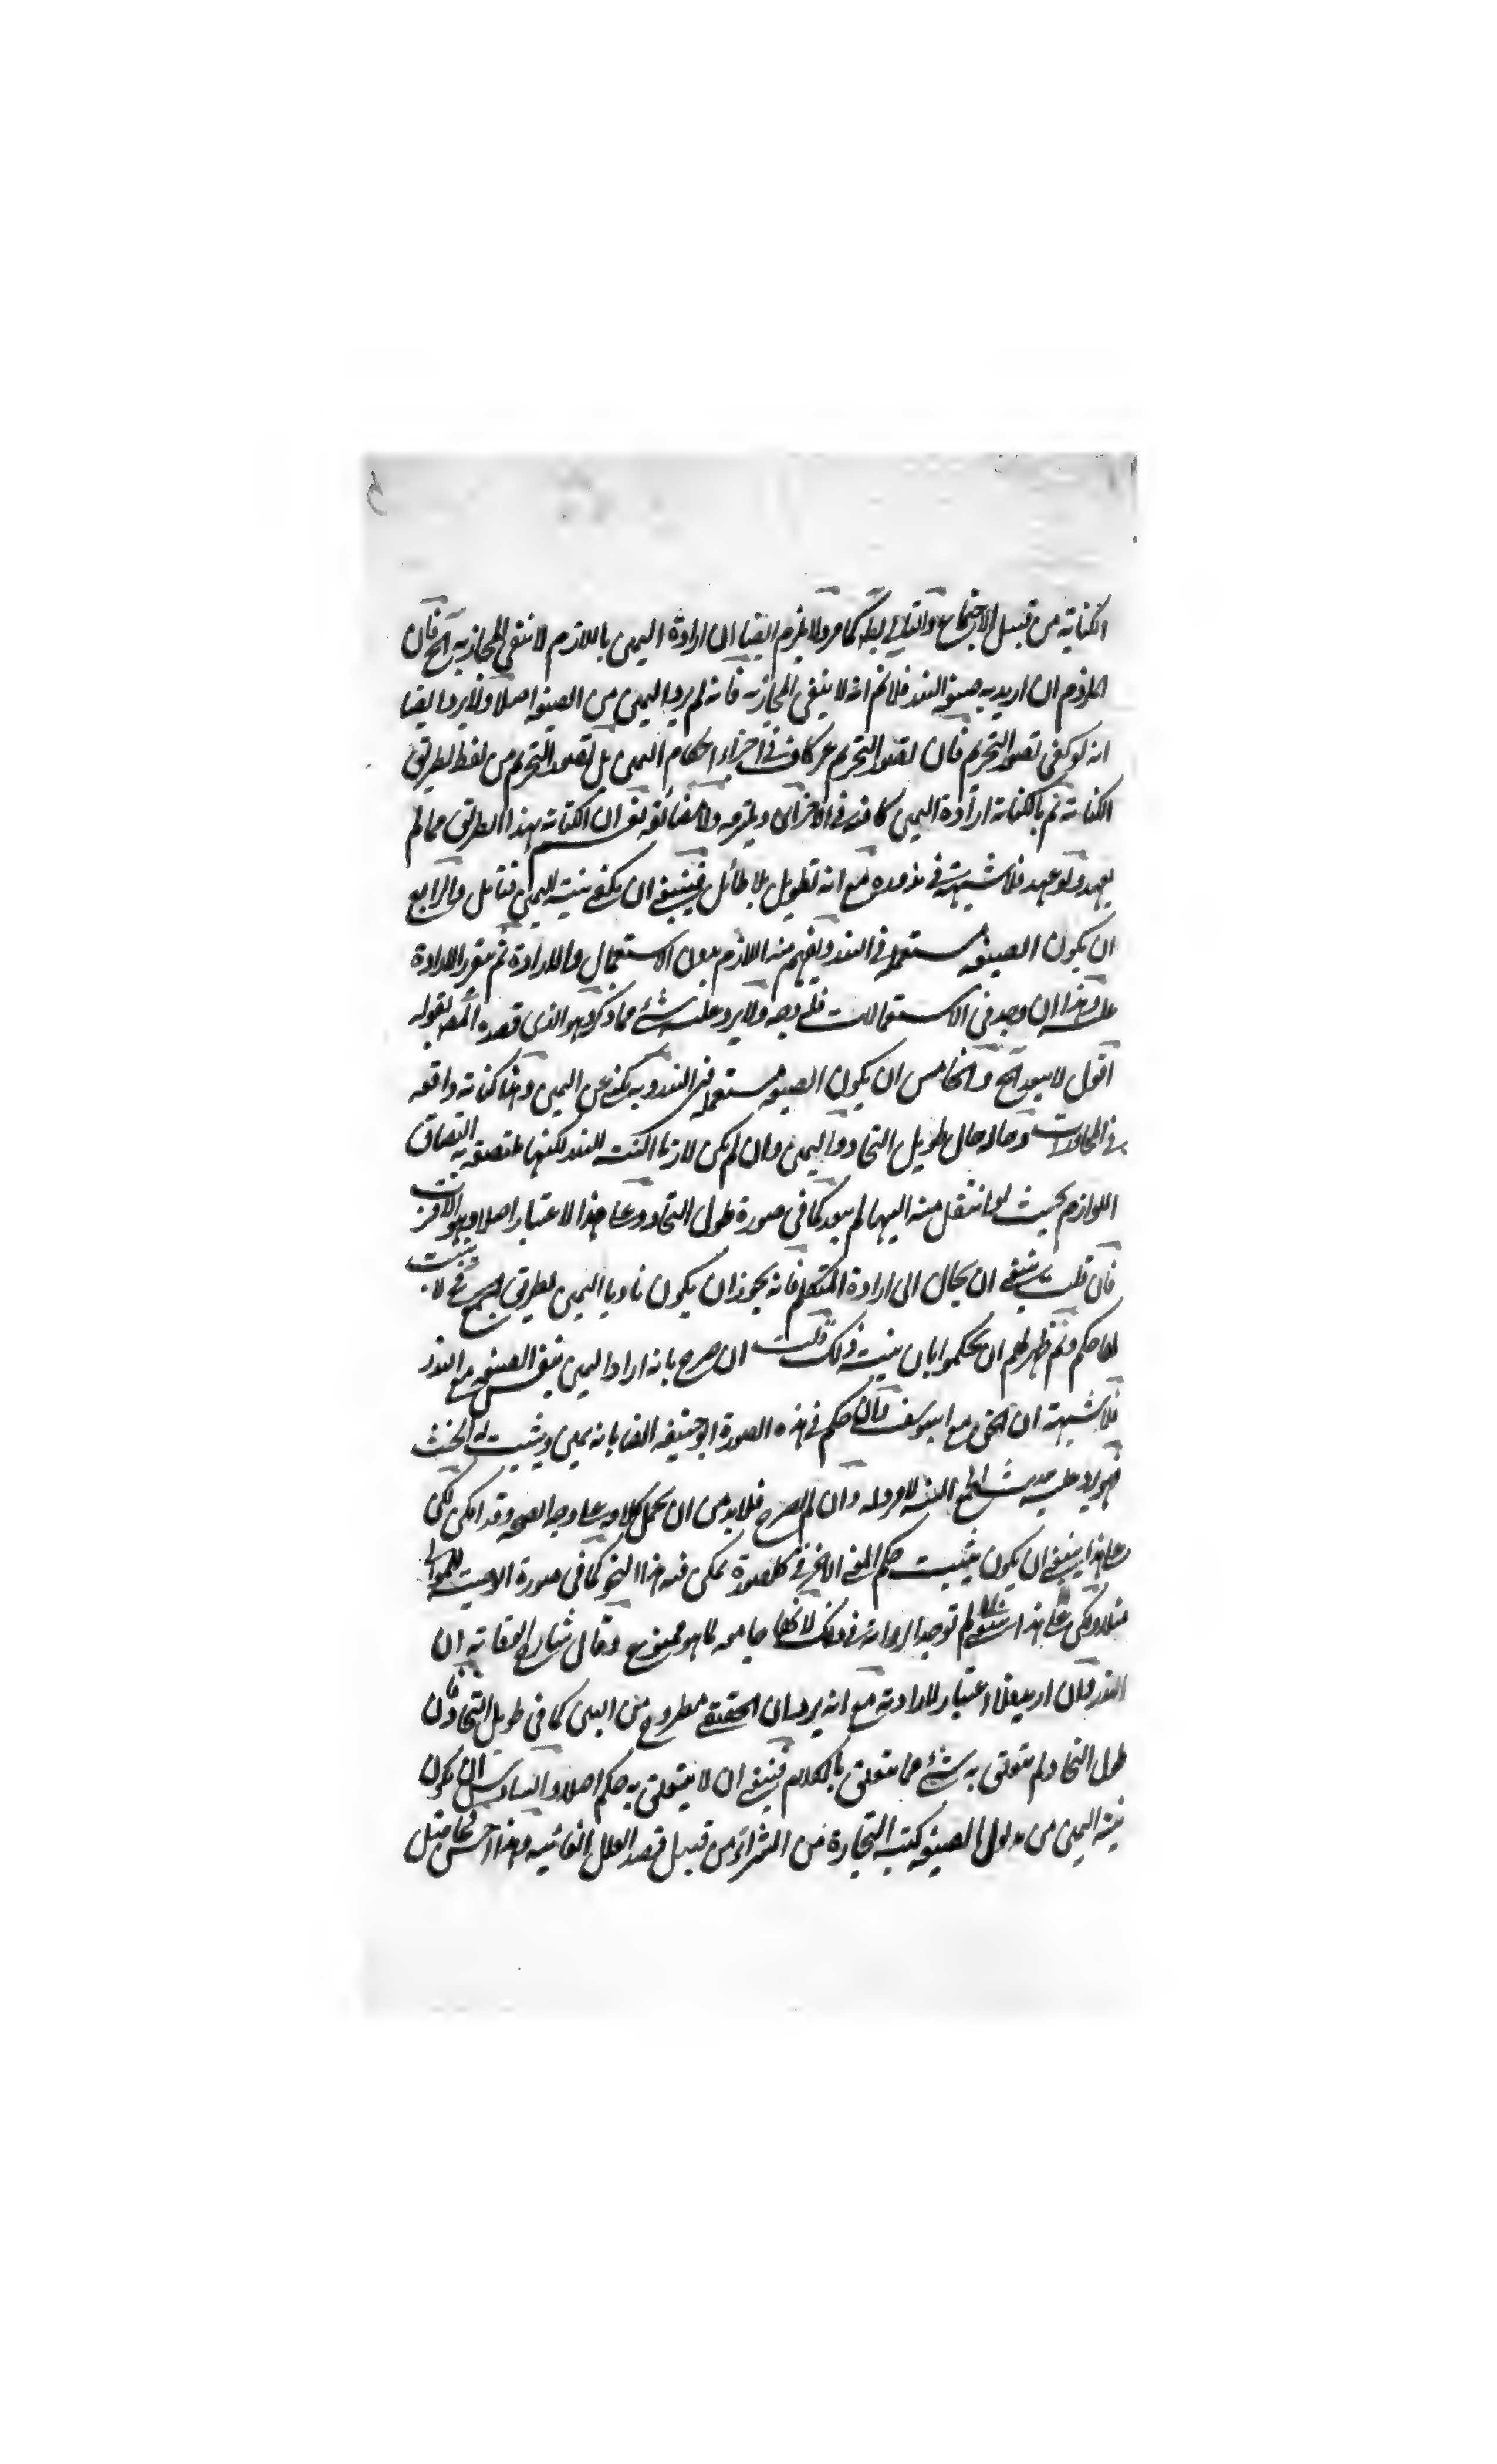 الكناية من قبيل الاجتماع والتالي بط كما مر ولا يلزم ايضا ان ارادة اليمين باللازم لا تنفي المجازية الخ فان
اللازم ان اريد به صيغة النذر فلانم انه لا ينفي المجازية فانه لم يرد اليمين من الصيغة اصلا ولا يرد ايضا
انه لو كفى تصور التحريم فان تصور التحريم غير كاف في اجراء احكام اليمين بل تصور التحريم من لفظ بطريق
الكناية ثم بالكناية ارادة اليمين كافية في الاجزاء ويلتزمه ولا مضائقة نعم ان الكناية بهذا الطريق مما لم
يعهد ولو عهد فلا شبهة في ندوره مع انه تطويل بلا طائل فينبغي ان يكفي نية اليمين فتامل والرابع
ان يكون الصيغة مستعملة في النذر ويفهم منه اللازم بدون الاستعمال والارادة ثم يتقرر الارادة
عليه وهذا ان وجد في الاستعمالات فله وجه ولا يرد عليه شئ مما ذكر وهو الذي قصده المص بقوله
اقول لا يبعد الخ والخامس ان يكون الصيغة مستعملة في النذر وبه يكنى عن اليمين وهذا كناية واقعة
في المحاورات وحاله حال طويل النجاد واليمين وان لم يكن لازما البتة للنذر لكنها ملتصقة به التصاق
اللوازم بحيث لو انتقل منه اليها لم يبعد كما في صورة طول النجاد وعلى هذا الاعتبار اصلا وهو الاقرب
فان قلت ينبغي ان يحال الى ارادة المتكلم فانه يجوز ان يكون ناويا اليمين بطريق الجمع فح لا يثبت
لها حكم ولم ظهر لهم ان يحكموا بان نيته ذلك قلت ان صرح بانه اراد اليمين بنفس الصيغة مع النذر
فلا شبهة ان الحق مع ابي يوسف وان حكم في هذه الصورة ابو حنيفة ايضا بانه يمين ويثبت له الحنث
فهو يرد عليه حديث الجمع البتة لا مرد له وان لم يصرح فلا بد من ان يحمل كلامه على وجه الصحة وقد امكن لكن
على هذا ينبغي ان يكون يثبت حكم المعنى الاخر في كل صورة يمكن فيه هذا النحو كما في صورة الوصية للموالي
مثلا ولكن على هذا لم توجد الرواية في ذلك وقال شارح الوقاية ان
النذر وان اريد فلا اعتبار لارادته مع انه يرد ان الحقيقي مطروح من البين كما في طويل النجاد فان
طول النجاد لم يتعلق به شئ مما يتعلق بالكلام فينبغي ان لا يتعلق به حكم اصلا والسادس ان يكون
نية اليمين من مدلول الصيغة كنية التجارة من الشراء من قبيل قصد العلل الغائية وهذا احسن